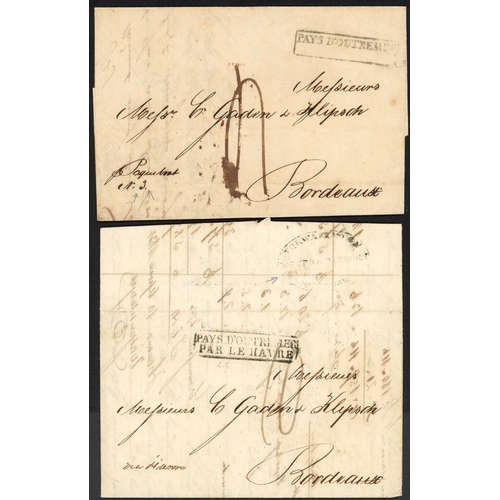 PAYS D'OUTREMER
Messieurs
Messrs C. Gaden & Klipsch
p Paquebot
N. 3.
Bordeaux
PAYS D'OUTREMER
PAR LE HAVRE
Messieurs
Messieurs C Gaden & Klipsch
via Havre
Bordeaux